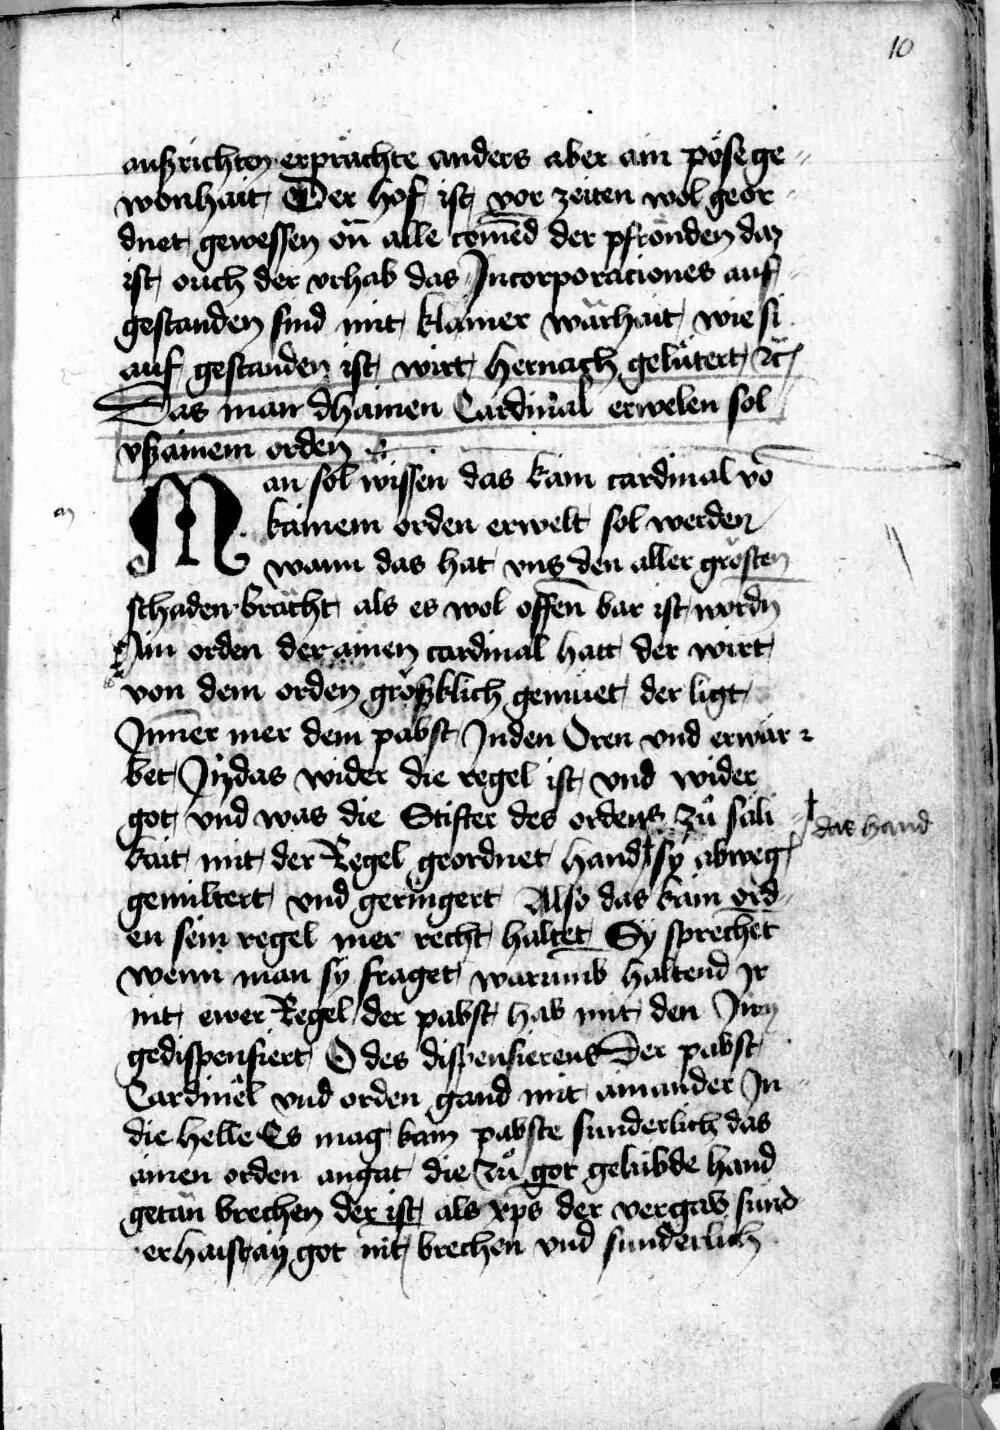 10
außrichten erprächte anders aber ain pöse ge„
wonhait Der hof ist vor zeiten wol geor„
dnet gewessen on̄ alle comēd der pfrönden daz
ist ouch der vrhab das Incorporaciones auf„
gestanden sind mit klainer wärhait wie si
auf gestanden ist wirt hernach gelütert ꝛc̄
Das man dhainen Cardinal erwelen sol
vßainem orden
Man sol wissen das kain cardinal vō
kainem orden erwelt sol werden
wann das hat vns den aller grösten
schaden brächt als es wol offen bar ist wordn̄
Ain orden der ainen cardinal hatt der wirt
von dem orden größklich gemüet der ligt
Inn̄er mer dem pabst Inden Oren vnd erwär„
bet In̄ das wider die regel ist vnd wider
got vnd was die Stifter des ordens zů säli„
kait mit der Regel geordnet hand sy abweg
das hand
gemiltert vnd geringert Also das kain ord„
en sein regel mer recht haltet Sy sprechēt
wenn man sy fraget warumb haltend Ir
nit ewer Regel der pabst hab mit den Irn̄
gedispensiert O des dispensierens Der pabst
Cardinel vnd orden gand mit ainander In„
die helle Es mag kain pabste sunderlich das
ainen orden angat die zů got gelübde hand
getän brechen der ist als xp̄s der vergab sünd
er haist ain got nit brechen vnd sunderlich